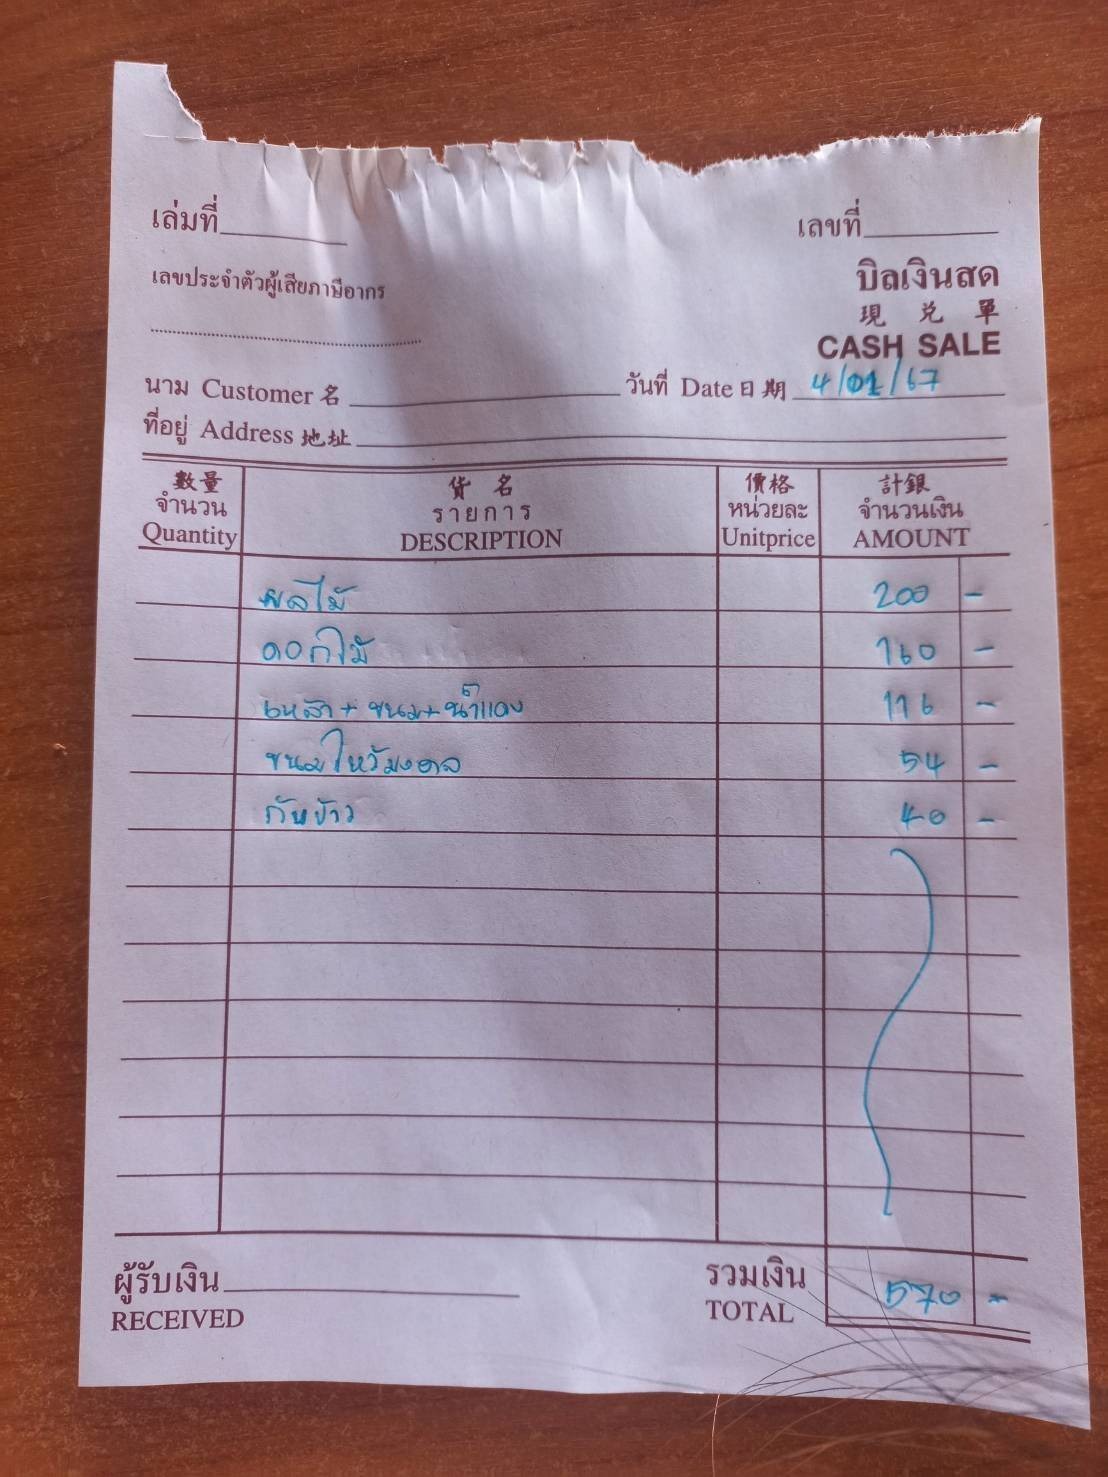 เล่มที่ เลขที่
เลขประจำตัวผู้เสียภาษีอากร
บิลเงินสด
現兑單
CASH SALE
นาม Customer 名 วันที่ Date 日期 4/01/67
ที่อยู่ Address 地址
數量 貨名 價格 計銀
จำนวน รายการ หน่วยละ จำนวนเงิน
Quantity DESCRIPTION Unitprice AMOUNT
ผลไม้ 200 -
ดอกไม้ 160 -
เหล้า + ขนม + น้ำแดง 116 -
ขนมไหว้มงคล 54 -
กับข้าว 40 -
ผู้รับเงิน รวมเงิน 570 -
RECEIVED TOTAL